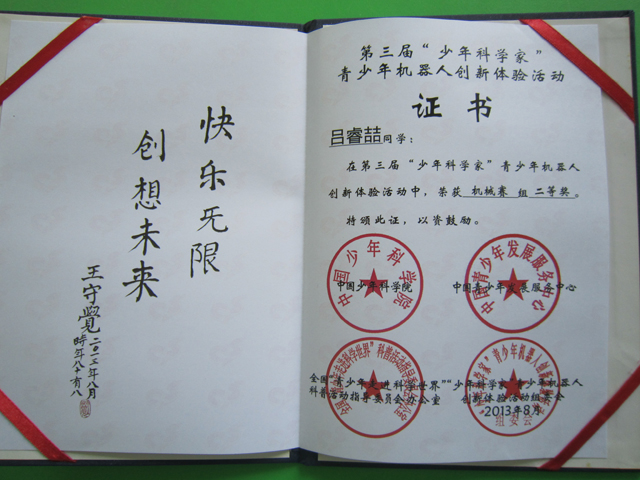 快乐无限
创想未来
王守觉
二〇一二年八月
时年八十有八
第三届“少年科学家”
青少年机器人创新体验活动
证书
吕睿喆同学：
在第三届“少年科学家”青少年机器人
创新体验活动中，荣获 机械赛 组 二等奖。
特颁此证，以资鼓励。
中国少年科学院
中国青少年发展服务中心
中国少年科学院
中国青少年发展服务中心
全国“青少年走进科学世界”
科普活动指导委员会办公室
“少年科学家”青少年机器人
创新体验活动组委会
组委会
2013年8月